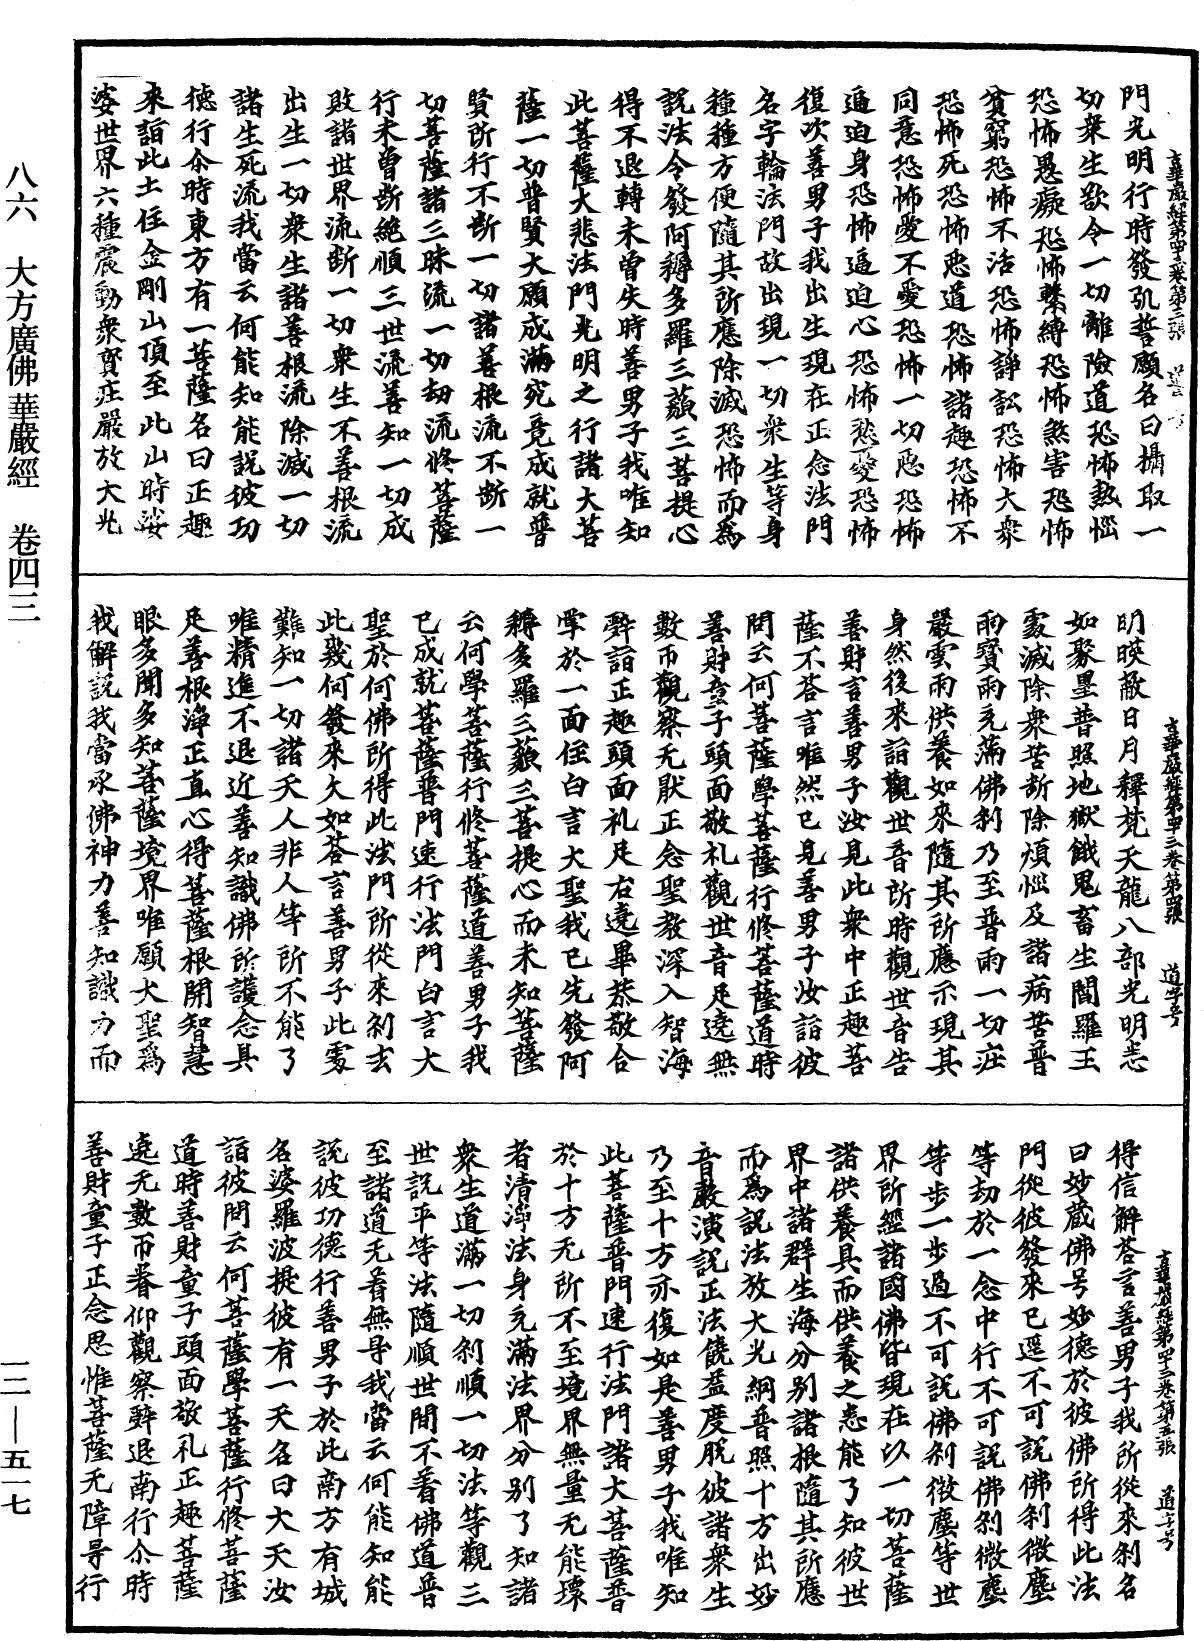 八六　大方廣佛華嚴經　卷四三
一二—五一七
門光明行時發弘誓願名曰攝取一
切衆生欲令一切離險道恐怖熱惱
恐怖愚癡恐怖繫縛恐怖煞害恐怖
貧窮恐怖不活恐怖諍訟恐怖大衆
恐怖死恐怖惡道恐怖諸趣恐怖不
同意恐怖愛不愛恐怖一切惡恐怖
逼迫身恐怖逼迫心恐怖愁憂恐怖
復次善男子我出生現在正念法門
名字輪法門故出現一切衆生等身
種種方便隨其所應除滅恐怖而爲
說法令發阿耨多羅三藐三菩提心
得不退轉未曾失時善男子我唯知
此菩薩大悲法門光明之行諸大菩
薩一切普賢大願成滿究竟成就普
賢所行不斷一切諸善根流不斷一
切菩薩諸三昧流一切劫流修菩薩
行未曾斷絶順三世流善知一切成
敗諸世界流斷一切衆生不善根流
出生一切衆生諸善根流除滅一切
諸生死流我當云何能知能說彼功
德行尒時東方有一菩薩名曰正趣
來詣此土住金剛山頂至此山時娑
婆世界六種震動衆寳莊嚴放大光
華嚴經第四十三卷第四張　道字号
明暎蔽日月釋梵天龍八部光明悉
如聚墨普照地獄餓鬼畜生閻羅王
處滅除衆苦斷除煩惱及諸病苦普
雨寳雨充滿佛刹乃至普雨一切莊
嚴雲雨供養如來隨其所應示現其
身然後來詣觀世音所時觀世音告
善財言善男子汝見此衆中正趣菩
薩不荅言唯然已見善男子汝詣彼
問云何菩薩學菩薩行修菩薩道時
善財童子頭面敬礼觀世音足遶無
數帀觀察无猒正念聖教深入智海
辤詣正趣頭面礼足右遶畢恭敬合
掌於一面住白言大聖我已先發阿
耨多羅三藐三菩提心而未知菩薩
云何學菩薩行修菩薩道善男子我
已成就菩薩普門速行法門白言大
聖於何佛所得此法門所從來刹去
此幾何發來久如荅言善男子此處
難知一切諸天人非人等所不能了
唯精進不退近善知識佛所護念具
足善根淨正直心得菩薩根開智慧
眼多聞多知菩薩境界唯願大聖爲
我解説我當承佛神力善知識力而
華嚴經第四十三卷第五張　道字号
得信解荅言善男子我所從來刹名
曰妙藏佛号妙德於彼佛所得此法
門從彼發來已逕不可説佛刹微塵
等劫於一念中行不可説佛刹微塵
等步一步過不可説佛刹微塵等世
界所經諸國佛皆現在以一切菩薩
諸供養具而供養之悉能了知彼世
界中諸群生海分別諸根隨其所應
而爲説法放大光網普照十方出妙
音嚴演説正法饒益度脱彼諸衆生
乃至十方亦復如是善男子我唯知
此菩薩普門速行法門諸大菩薩普
於十方无所不至境界無量无能壞
者清淨法身充滿法界分别了知諸
衆生道滿一切刹順一切法等觀三
世説平等法隨順世間不着佛道普
至諸道无着無㝵我當云何能知能
説彼功德行善男子於此南方有城
名婆羅波提彼有一天名曰大天汝
詣彼問云何菩薩學菩薩行修菩薩
道時善財童子頭面敬礼正趣菩薩
遶无數帀眷仰觀察辤退南行尒時
善財童子正念思惟菩薩无障㝵行